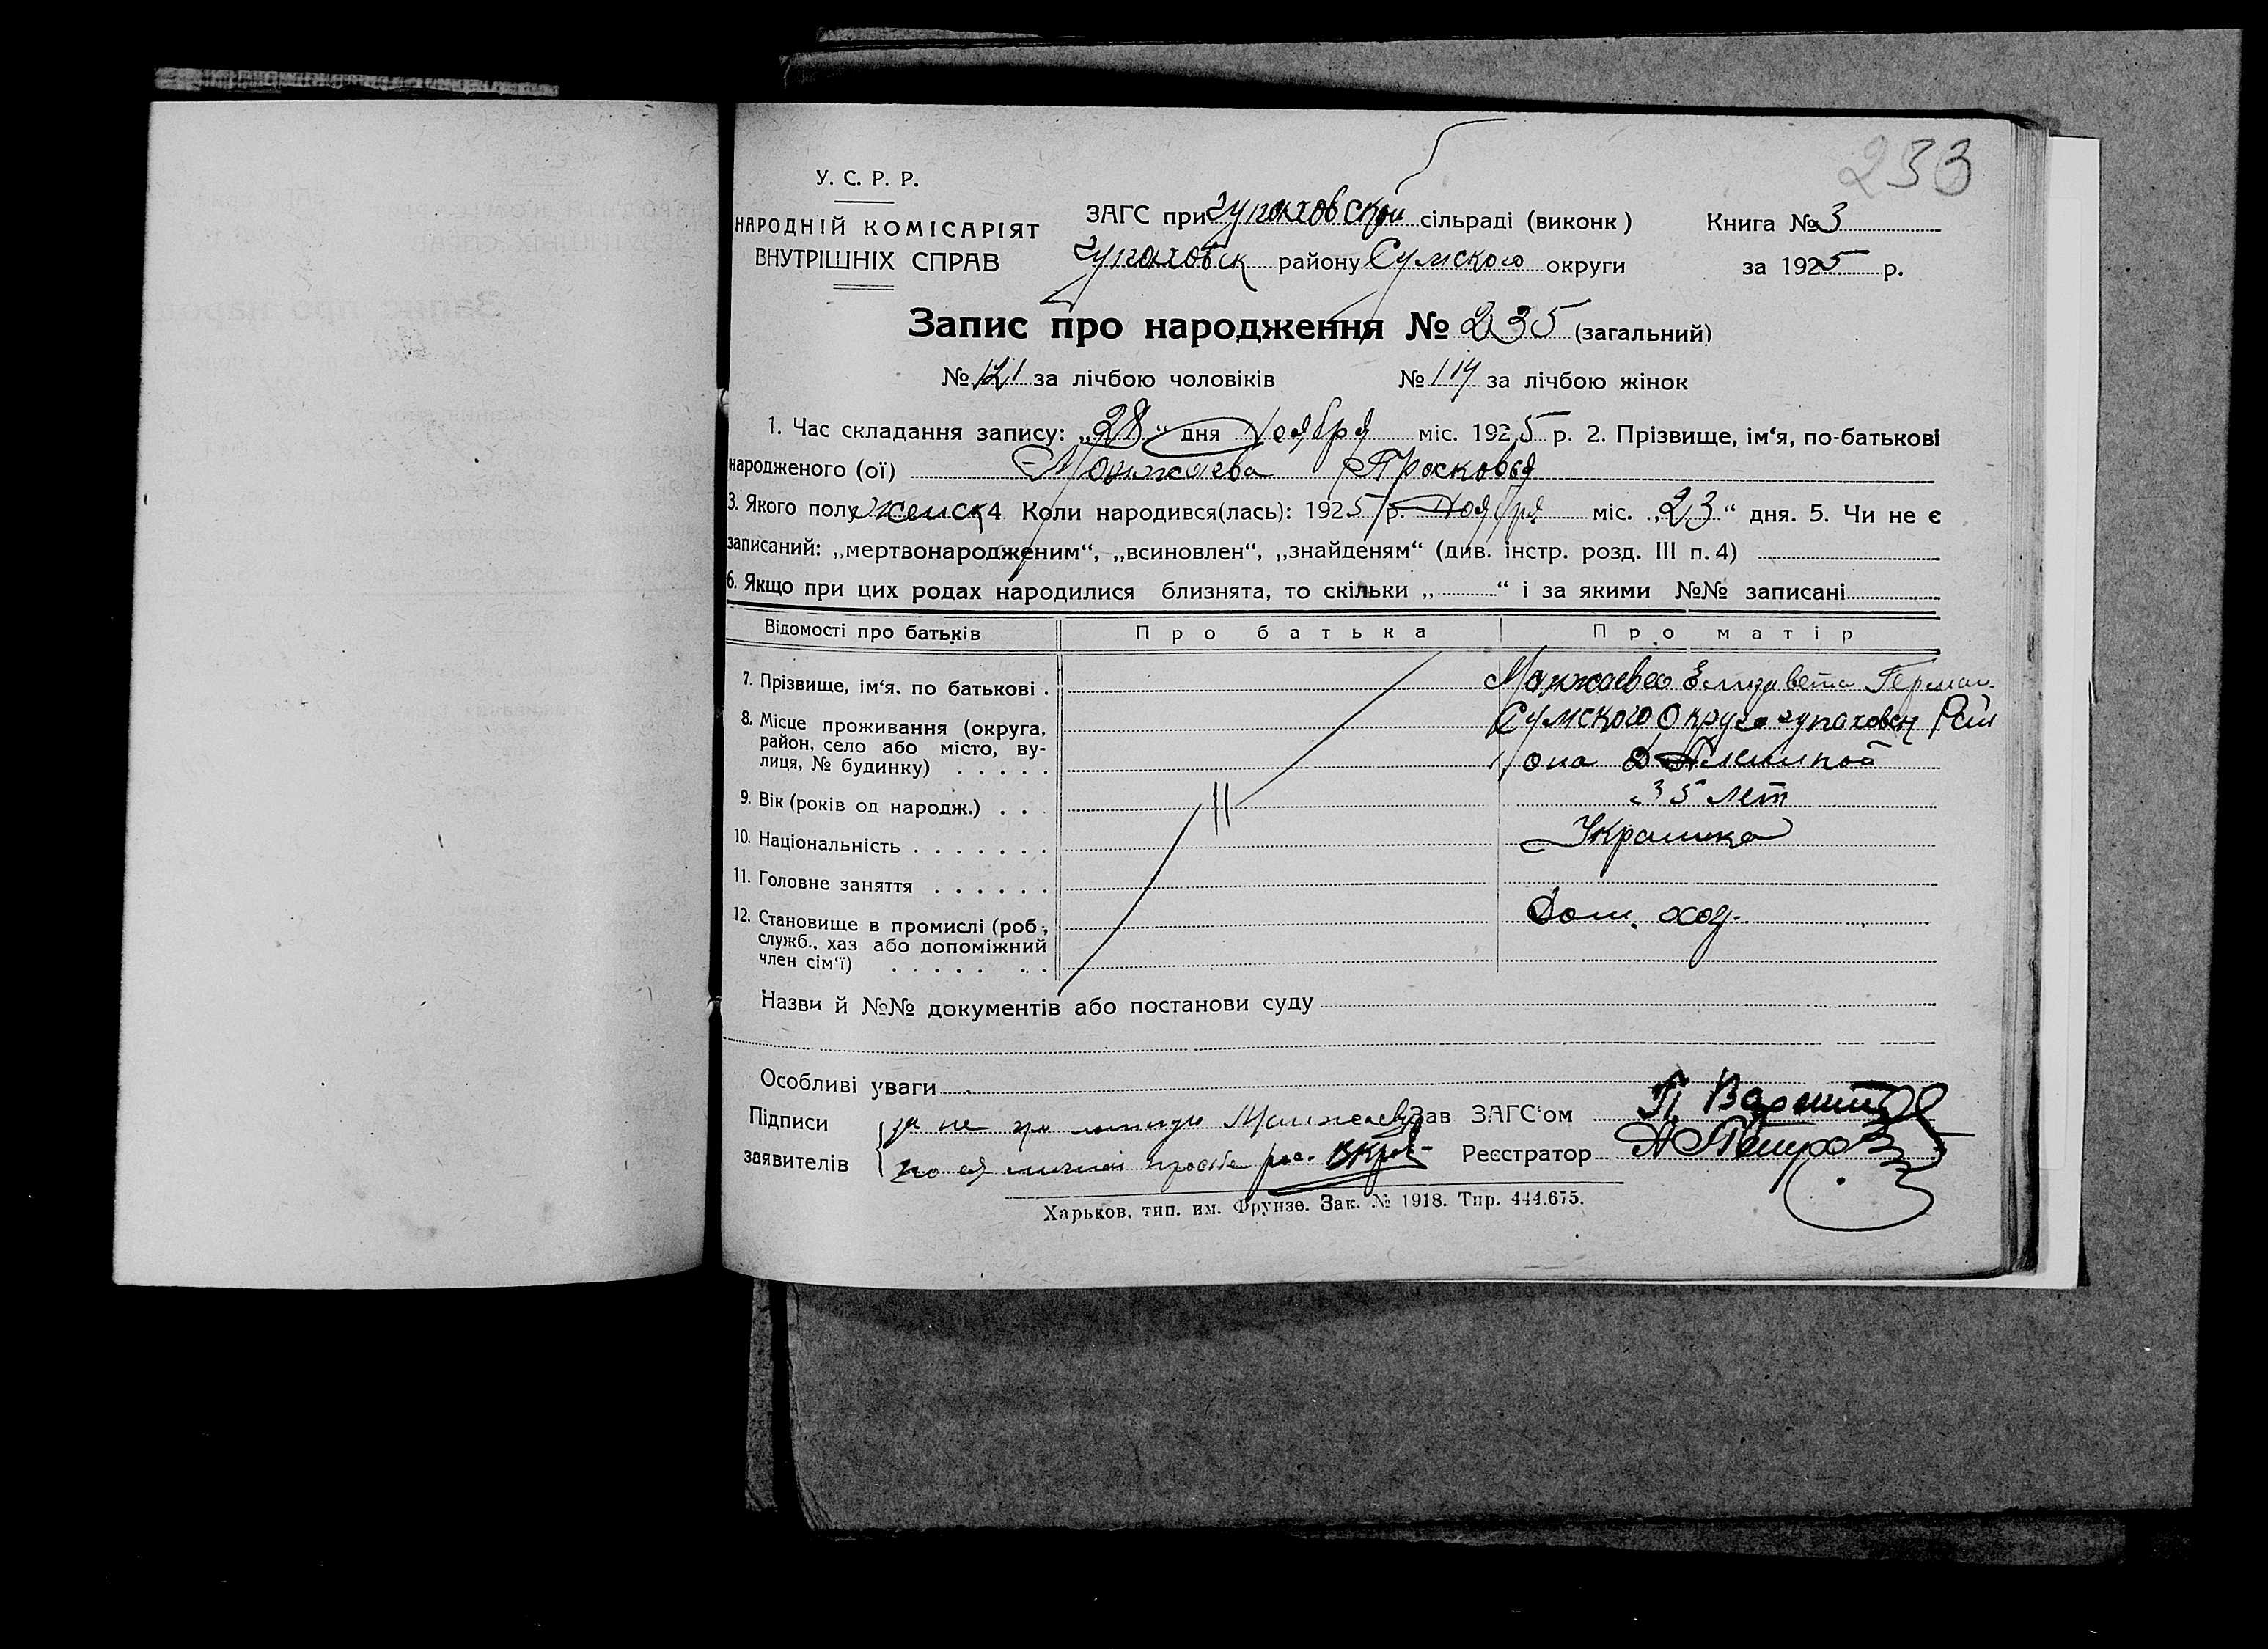 233
У. С. Р. Р.
НАРОДНІЙ КОМІСАРІЯТ
ВНУТРІШНІХ СПРАВ
ЗАГС при гупаховской сільраді (виконк)
гупаховск району Сумского округи
Книга № 3
за 1925 р.
Запис про народження № 235 (загальний)
№ 121 за лічбою чоловіків № 114 за лічбою жінок
1. Час складання запису: „28“ дня Ноября міс. 1925 р. 2. Прізвище, ім‘я, по-батькові
народженого (ої) Манжаева Прасковея
3. Якого полу женск 4 Коли народився(лась): 1925 р. Ноября міс. „23“ дня. 5. Чи не є
записаний: „мертвонародженим“, „всиновлен“, „знайденям“ (див. інстр. розд. III п. 4)
6. Якщо при цих родах народилися близнята, то скільки „ “ і за якими №№ записані
Відомості про батьків Про батька Про матір
7. Прізвище, ім‘я, по батькові . Манжаева Елизавета Герман.
8. Місце проживання (округа, Сумского Округа гупаховск Рай
район, село або місто, ву-
лиця, № будинку) . . . . . она
9. Вік (років од народж.) . . . 35 лет
10. Національність . . . . . . . Украинка
11. Головне заняття . . . . . .
12. Становище в промислі (роб., Дом. хоз.
служб., хаз або допоміжний
член сім‘ї) . . . . . . .
Назви й №№ документів або постанови суду
Особливі уваги
Підписи
заявителів
за не
по ея личной просьбе рас.
Зав ЗАГС‘ом П
Реєстратор А Петров
Харьков. тип. им. Фрунзе. Зак. № 1918. Тир. 444.675.